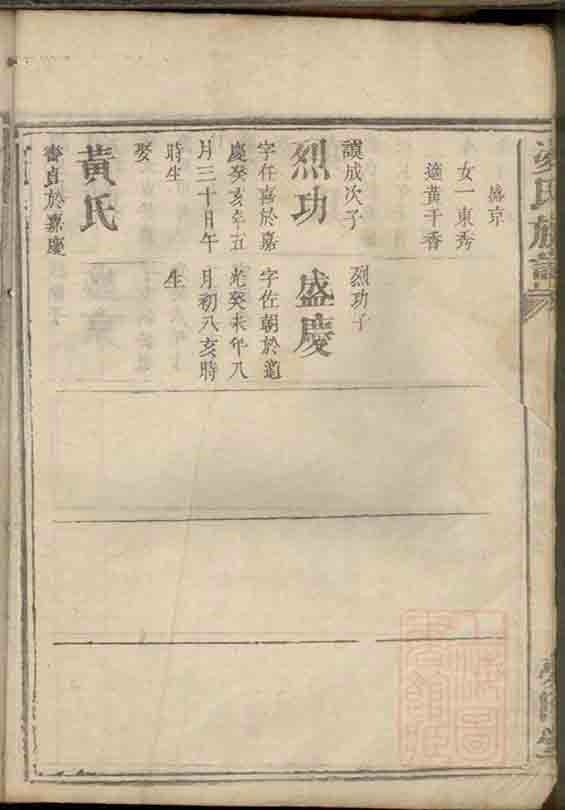 盛京
女一東秀
適黃干香
謨成次子
烈功
字任喜於嘉
慶癸亥年五
月三十日午
時生
娶
黃氏
審貞於嘉慶
烈功子
盛慶
字佐朝於道
光癸未年八
月初八亥時
生
氏族譜
上海圖
書館藏